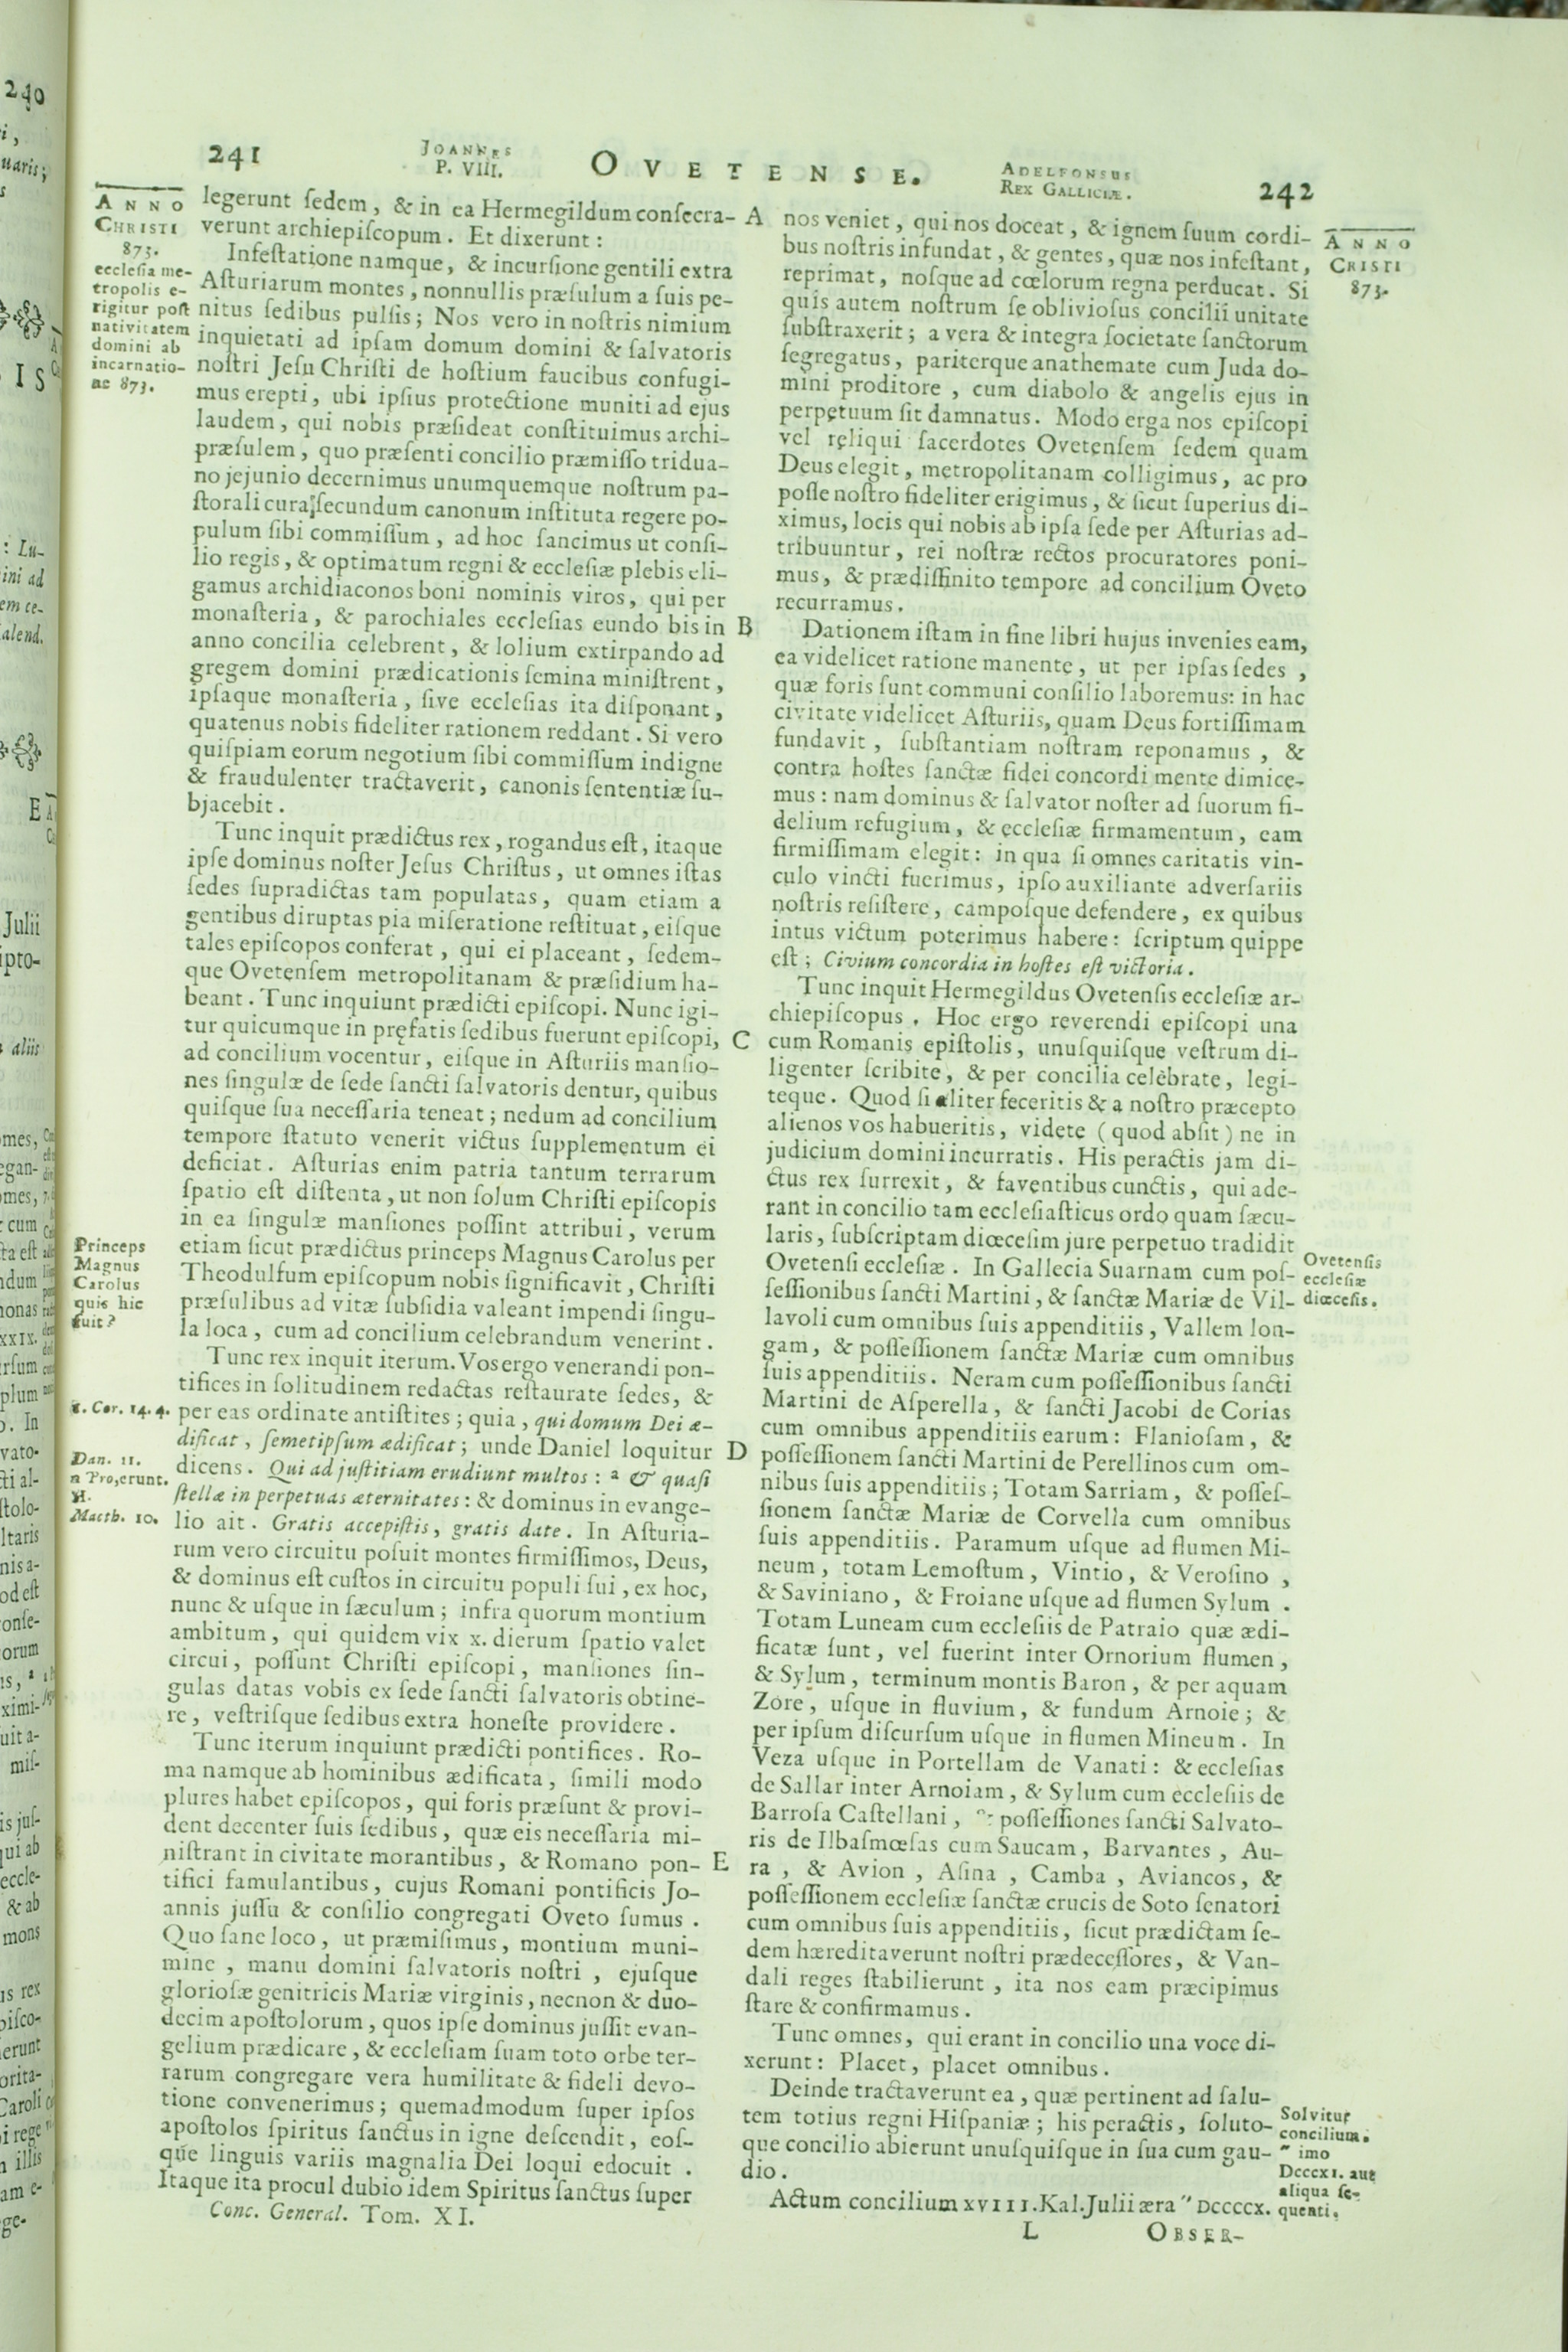 241
JOANNES
P. VIII.
OVETENSE.
ADELFONSUS
REX GALLICIÆ.
242
ANNO
CHRISTI
873.
ecclesia me-
tropolis e-
rigitur post
nativitatem
domini ab
incarnatio-
ne 873.
legerunt ſedem, & in ea Hermegildum conſecra-
verunt archiepiſcopum. Et dixerunt:
Infeſtatione namque, & incurſione gentili extra
Aſturiarum montes, nonnullis præſulum a ſuis pe-
nitus ſedibus pulſis; Nos vero in noſtris nimium
inquietati ad ipſam domum domini & ſalvatoris
noſtri Jeſu Chriſti de hoſtium faucibus confugi-
mus erepti, ubi ipſius protectione muniti ad ejus
laudem, qui nobis præſideat conſtituimus archi-
præſulem, quo præſenti concilio præmiſſo tridua-
no jejunio decernimus unumquemque noſtrum pa-
ſtorali cura, ſecundum canonum inſtituta regere po-
pulum ſibi commiſſum, ad hoc ſancimus ut conſi-
lio regis, & optimatum regni & eccleſiæ plebis eli-
gamus archidiaconos boni nominis viros, qui per
monaſteria, & parochiales eccleſias eundo bis in
anno concilia celebrent, & lolium extirpando ad
gregem domini prædicationis ſemina miniſtrent,
ipſaque monaſteria, ſive eccleſias ita diſponant,
quatenus nobis fideliter rationem reddant. Si vero
quiſpiam eorum negotium ſibi commiſſum indigne
& fraudulenter tractaverit, canonis ſententiæ ſu-
bjacebit.
Tunc inquit prædictus rex, rogandus eſt, itaque
ipſe dominus noſter Jeſus Chriſtus, ut omnes iſtas
ſedes ſupradictas tam populatas, quam etiam a
gentibus diruptas pia miſeratione reſtituat, eiſque
tales epiſcopos conferat, qui ei placeant, ſedem-
que Ovetenſem metropolitanam & præſidium ha-
beant. Tunc inquiunt prædicti epiſcopi. Nunc igi-
tur quicumque in pręfatis ſedibus fuerunt epiſcopi,
ad concilium vocentur, eiſque in Aſturiis manſio-
nes ſingulæ de ſede ſancti ſalvatoris dentur, quibus
quiſque ſua neceſſaria teneat; nedum ad concilium
tempore ſtatuto venerit victus ſupplementum ei
deficiat. Aſturias enim patria tantum terrarum
ſpatio eſt diſtenta, ut non ſolum Chriſti epiſcopis
in ea ſingulæ manſiones poſſint attribui, verum
etiam ſicut prædictus princeps Magnus Carolus per
Theodulfum epiſcopum nobis ſignificavit, Chriſti
præſulibus ad vitæ ſubſidia valeant impendi ſingu-
la loca, cum ad concilium celebrandum venerint.
Tunc rex inquit iterum. Vos ergo venerandi pon-
tifices in ſolitudinem redactas reſtaurate ſedes, &
per eas ordinate antiſtites; quia, qui domum Dei æ-
dificat, ſemetipſum ædificat; unde Daniel loquitur
dicens. Qui ad juſtitiam erudiunt multos: ª & quaſi
ſtellæ in perpetuas æternitates: & dominus in evange-
lio ait. Gratis accepiſtis, gratis date. In Aſturia-
rum vero circuitu poſuit montes firmiſſimos, Deus,
& dominus eſt cuſtos in circuitu populi ſui, ex hoc,
nunc & uſque in ſæculum; infra quorum montium
ambitum, qui quidem vix x. dierum ſpatio valet
circui, poſſunt Chriſti epiſcopi, manſiones ſin-
gulas datas vobis ex ſede ſancti ſalvatoris obtine-
re, veſtriſque ſedibus extra honeſte providere.
Tunc iterum inquiunt prædicti pontifices. Ro-
ma namque ab hominibus ædificata, ſimili modo
plures habet epiſcopos, qui foris præſunt & provi-
dent decenter ſuis ſedibus, quæ eis neceſſaria mi-
niſtrant in civitate morantibus, & Romano pon-
tifici famulantibus, cujus Romani pontificis Jo-
annis juſſu & conſilio congregati Oveto ſumus.
Quo ſane loco, ut præmiſimus, montium muni-
mine, manu domini ſalvatoris noſtri, ejuſque
glorioſæ genitricis Mariæ virginis, necnon & duo-
decim apoſtolorum, quos ipſe dominus juſſit evan-
gelium prædicare, & eccleſiam ſuam toto orbe ter-
rarum congregare vera humilitate & fideli devo-
tione convenerimus; quemadmodum ſuper ipſos
apoſtolos ſpiritus ſanctus in igne deſcendit, eoſ-
que linguis variis magnalia Dei loqui edocuit.
Itaque ita procul dubio idem Spiritus ſanctus ſuper
Princeps
Magnus
Carolus
quis hic
fuit?
1. Cor. 14. 4.
Dan. 11.
n Pro, erunt.
H.
Matth. 10.
Conc. General. Tom. XI.
A
B
C
D
E
nos veniet, qui nos doceat, & ignem ſuum cordi-
bus noſtris infundat, & gentes, quæ nos infeſtant,
reprimat, noſque ad cœlorum regna perducat. Si
quis autem noſtrum ſe oblivioſus concilii unitate
ſubſtraxerit; a vera & integra ſocietate ſanctorum
ſegregatus, pariterque anathemate cum Juda do-
mini proditore, cum diabolo & angelis ejus in
perpetuum ſit damnatus. Modo erga nos epiſcopi
vel reliqui ſacerdotes Ovetenſem ſedem quam
Deus elegit, metropolitanam colligimus, ac pro
poſſe noſtro fideliter erigimus, & ſicut ſuperius di-
ximus, locis qui nobis ab ipſa ſede per Aſturias ad-
tribuuntur, rei noſtræ rectos procuratores poni-
mus, & prædiffinito tempore ad concilium Oveto
recurramus.
Dationem iſtam in fine libri hujus invenies eam,
ea videlicet ratione manente, ut per ipſas ſedes,
quæ foris ſunt communi conſilio laboremus: in hac
civitate videlicet Aſturiis, quam Deus fortiſſimam
fundavit, ſubſtantiam noſtram reponamus, &
contra hoſtes ſanctæ fidei concordi mente dimice-
mus: nam dominus & ſalvator noſter ad ſuorum fi-
delium refugium, & eccleſiæ firmamentum, eam
firmiſſimam elegit: in qua ſi omnes caritatis vin-
culo vincti fuerimus, ipſo auxiliante adverſariis
noſtris reſiſtere, campoſque defendere, ex quibus
intus victum poterimus habere: ſcriptum quippe
eſt; Civium concordia in hoſtes eſt victoria.
Tunc inquit Hermegildus Ovetenſis eccleſiæ ar-
chiepiſcopus. Hoc ergo reverendi epiſcopi una
cum Romanis epiſtolis, unuſquiſque veſtrum di-
ligenter ſcribite, & per concilia celebrate, legi-
teque. Quod ſi aliter feceritis & a noſtro præcepto
alienos vos habueritis, videte (quod abſit) ne in
judicium domini incurratis. His peractis jam di-
ctus rex ſurrexit, & faventibus cunctis, qui ade-
rant in concilio tam eccleſiaſticus ordo quam ſæcu-
laris, ſubſcriptam diœceſim jure perpetuo tradidit
Ovetenſi eccleſiæ. In Gallecia Suarnam cum poſ-
ſeſſionibus ſancti Martini, & ſanctæ Mariæ de Vil-
lavoli cum omnibus ſuis appenditiis, Vallem lon-
gam, & poſſeſſionem ſanctæ Mariæ cum omnibus
ſuis appenditiis. Neram cum poſſeſſionibus ſancti
Martini de Aſperella, & ſancti Jacobi de Corias
cum omnibus appenditiis earum: Flanioſam, &
poſſeſſionem ſancti Martini de Perellinos cum om-
nibus ſuis appenditiis; Totam Sarriam, & poſſeſ-
ſionem ſanctæ Mariæ de Corvella cum omnibus
ſuis appenditiis. Paramum uſque ad flumen Mi-
neum, totam Lemoſtum, Vintio, & Veroſino,
& Saviniano, & Froiane uſque ad flumen Sylum.
Totam Luneam cum eccleſiis de Patraio quæ ædi-
ficatæ ſunt, vel fuerint inter Ornorium flumen,
& Sylum, terminum montis Baron, & per aquam
Zore, uſque in fluvium, & fundum Arnoie; &
per ipſum diſcurſum uſque in flumen Mineum. In
Veza uſque in Portellam de Vanati: & eccleſias
de Sallar inter Arnoiam, & Sylum cum eccleſiis de
Barroſa Caſtellani, & poſſeſſiones ſancti Salvato-
ris de Ilbaſmœſas cum Saucam, Barvantes, Au-
ra, & Avion, Aſina, Camba, Aviancos, &
poſſeſſionem eccleſiæ ſanctæ crucis de Soto ſenatori
cum omnibus ſuis appenditiis, ſicut prædictam ſe-
dem hæreditaverunt noſtri prædeceſſores, & Van-
dali reges ſtabilierunt, ita nos eam præcipimus
ſtare & confirmamus.
Tunc omnes, qui erant in concilio una voce di-
xerunt: Placet, placet omnibus.
Deinde tractaverunt ea, quæ pertinent ad ſalu-
tem totius regni Hiſpaniæ; his peractis, ſoluto-
que concilio abierunt unuſquiſque in ſua cum gau-
dio.
Actum concilium XVIII. Kal. Julii æra " DCCCCX.
ANNO
CRISTI
873.
Ovetenſis
eccleſiæ
diœceſis.
Solvitur
concilium.
" imo
DCCCXI. aut
aliqua ſe-
quenti.
L
OBSER-
240